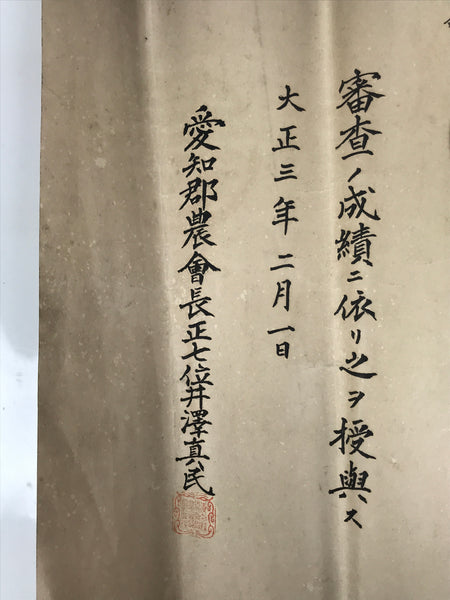 審査ノ成績ニ依リ之ヲ授與ス
大正三年二月一日
愛知郡農會長正七位井澤真民